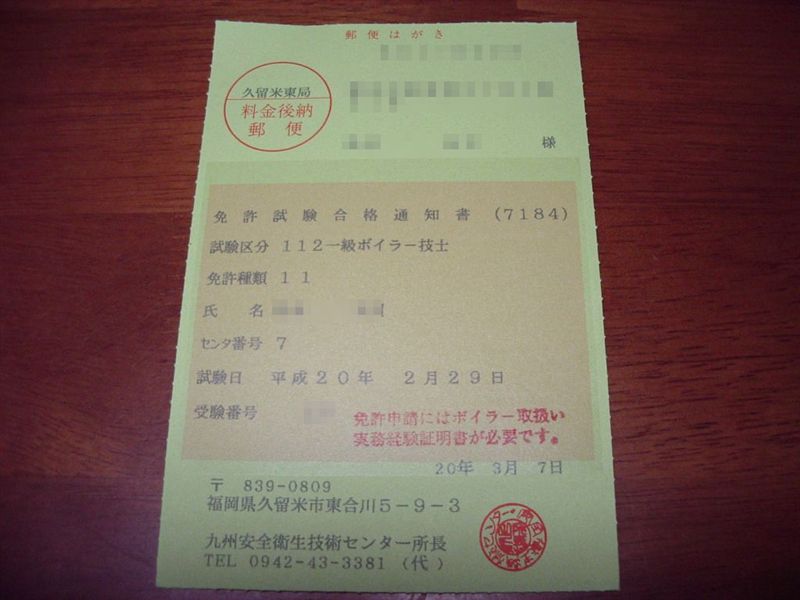 郵便はがき
久留米東局
料金後納
郵便
様
免許試験合格通知書 (7184)
試験区分 112一級ボイラー技士
免許種類 11
氏 名
センタ番号 7
試験日 平成20年 2月29日
受験番号
免許申請にはボイラー取扱い
実務経験証明書が必要です。
20年 3月 7日
〒 839-0809
福岡県久留米市東合川5-9-3
九州安全衛生技術センター所長
TEL 0942-43-3381 (代)